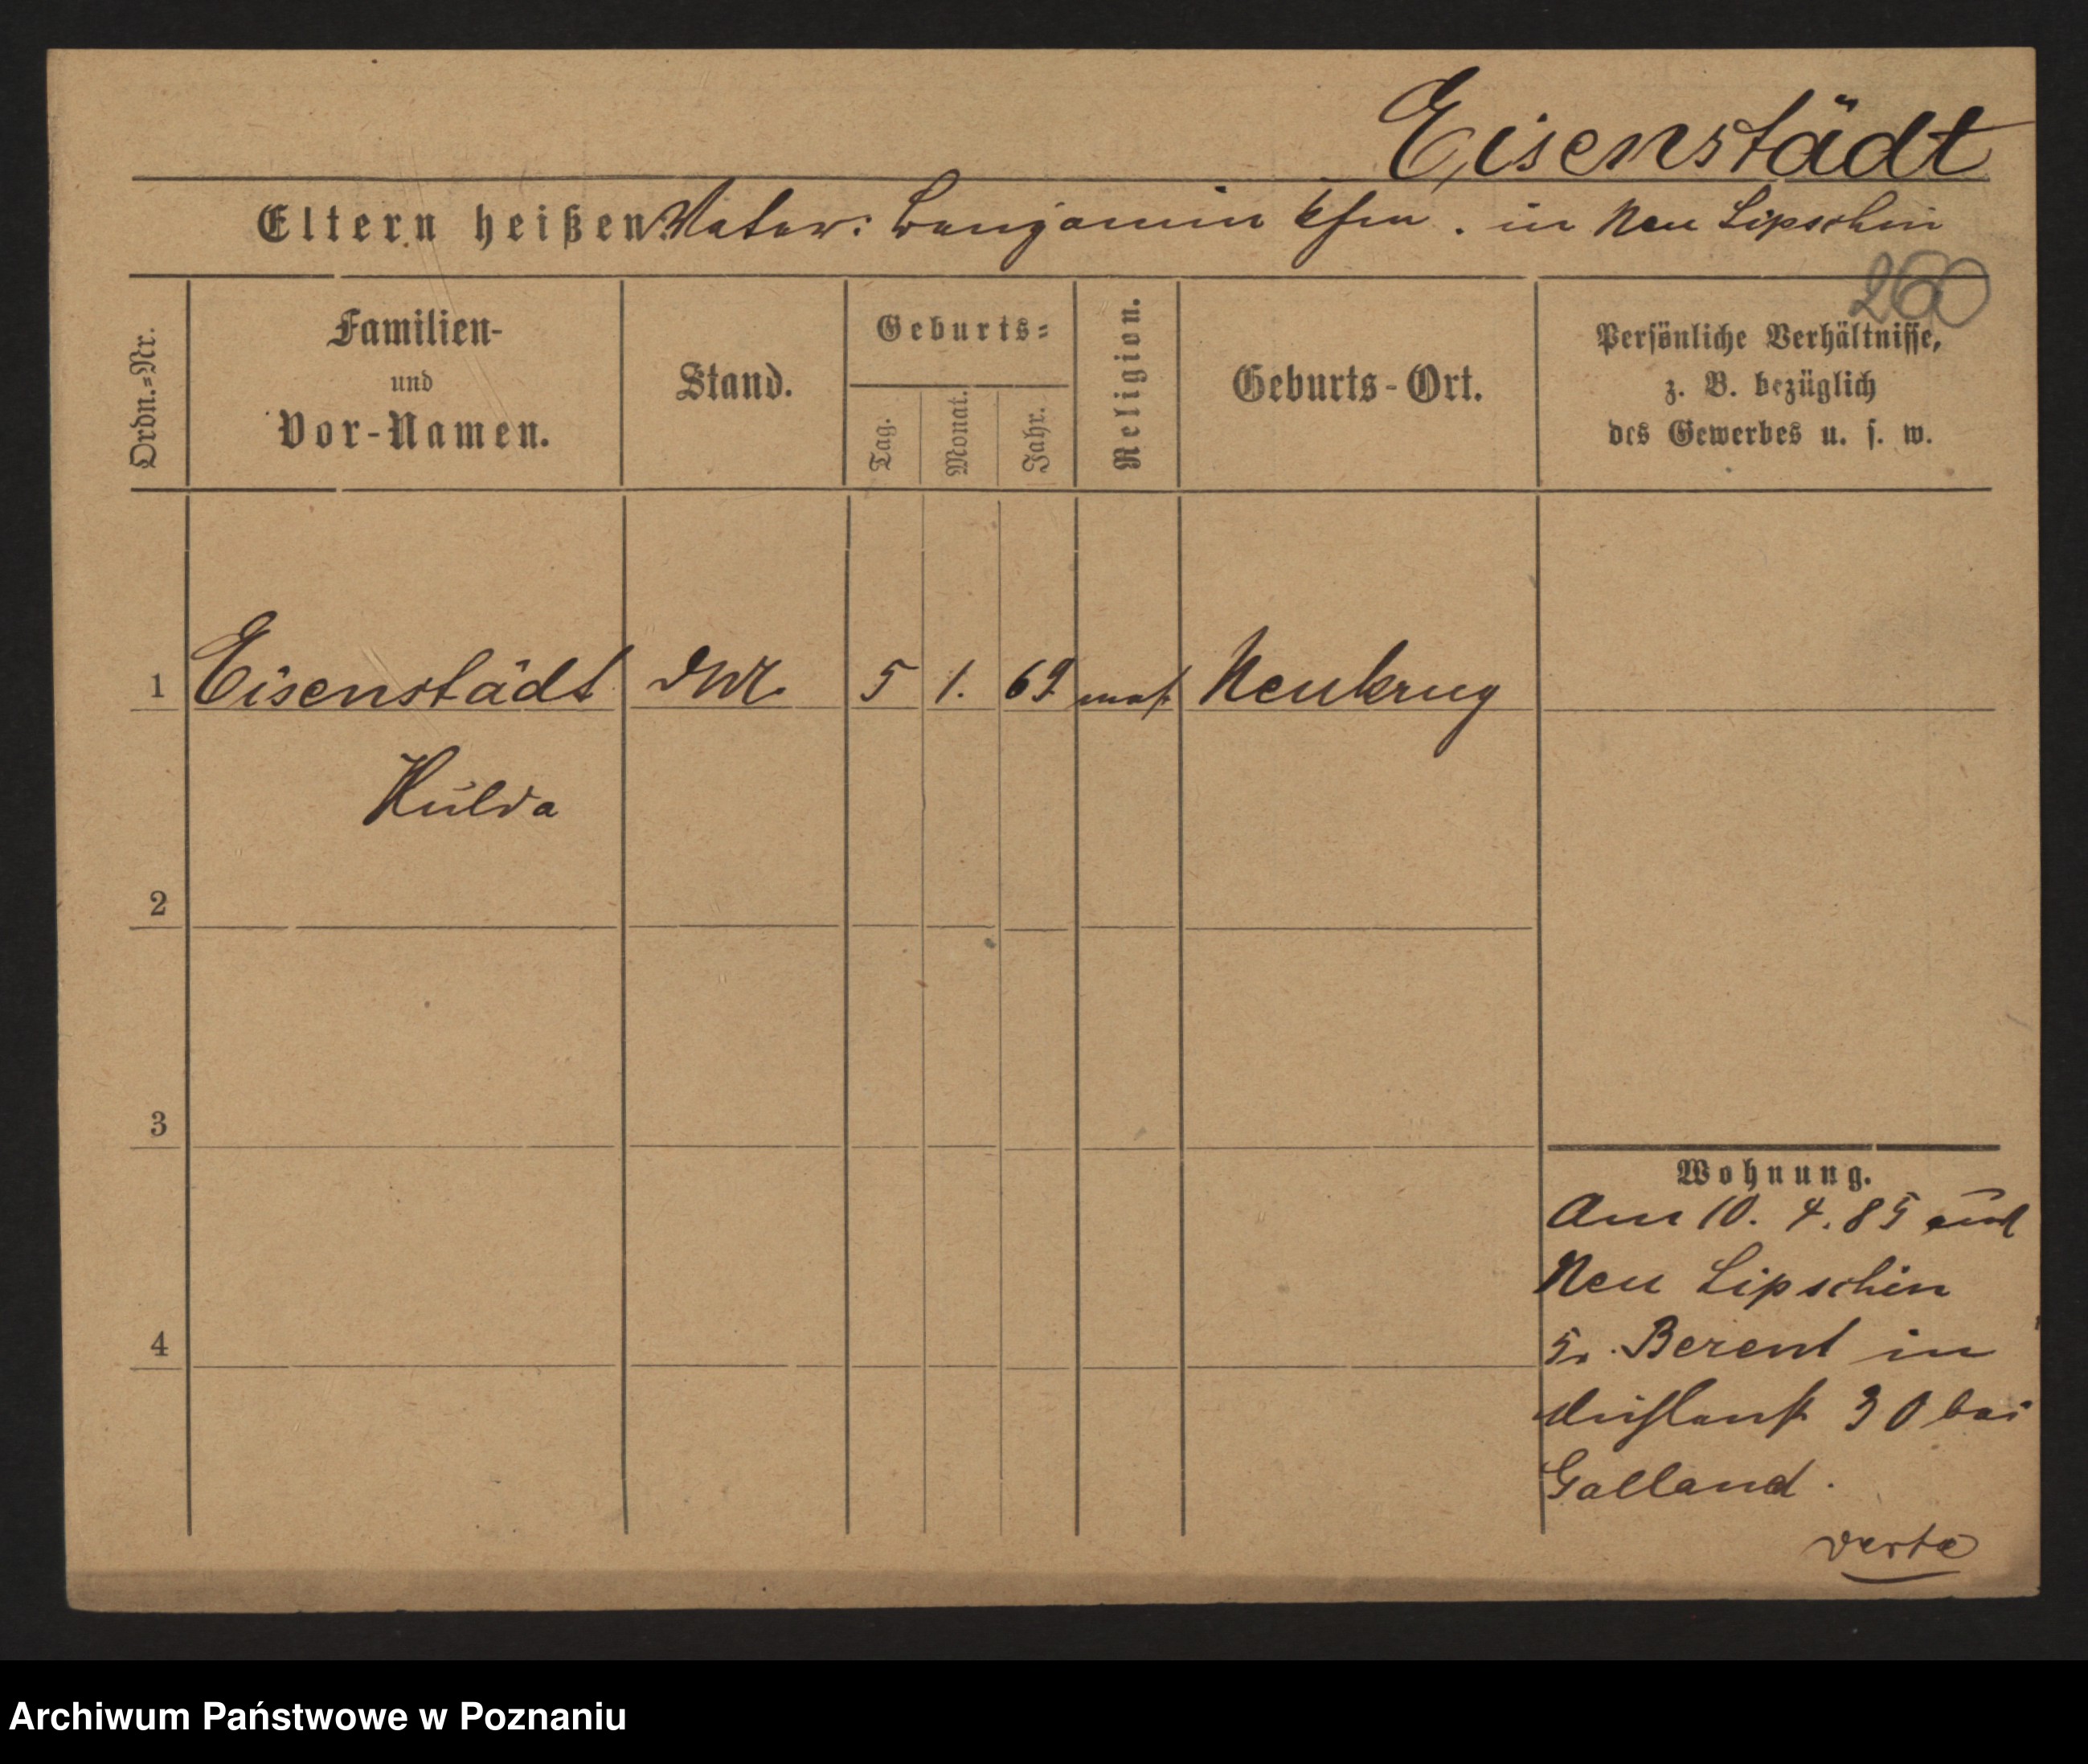 Eisenstädt
Eltern heißen: Vater: Benjamin Kfm. in Neu Lipschin
260
Ordn.=Nr.
Familien-
und
Vor-Namen.
Stand.
Geburts=
Tag.
Monat.
Jahr.
Religion.
Geburts-Ort.
Persönliche Verhältnisse,
z. B. bezüglich
des Gewerbes u. s. w.
1 Eisenstädt 5 1. 69 mos Neukrug
Hulda
2
3
4
Wohnung.
Am 10. 4. 85 aus
Neu Lipschin
Berent in
30 bei
Galland.
verte
Archiwum Państwowe w Poznaniu